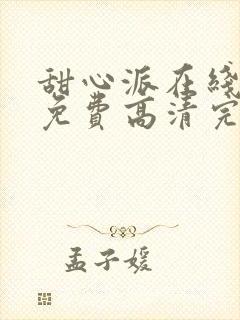 甜心派在线
免费高清完
孟子媛